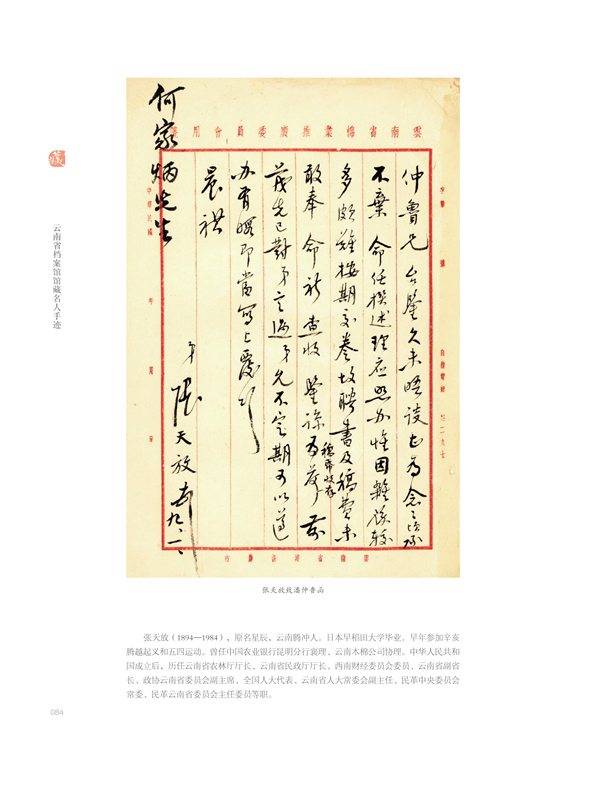 藏
云南省档案馆馆藏名人手迹
雲南省棉業推廣委員會用箋
仲魯兄台鑒久未晤談至为念之頃承
不棄命任撰述理应照办惟因雜务较
多頗難按期交卷故聘書及稿費未
敢奉命祈查收鉴諒为荷
茂先已對弟言過弟允不定期可以遵
办有暇即當寫上
晨祺
弟
張天放
何家炳先生
中華民國 年 月 日
张天放致潘仲鲁函
张天放（1894—1984），原名星辰，云南腾冲人。日本早稻田大学毕业。早年参加辛亥
腾越起义和五四运动。曾任中国农业银行昆明分行襄理、云南木棉公司协理。中华人民共和
国成立后，历任云南省农林厅厅长、云南省民政厅厅长、西南财经委员会委员、云南省副省
长、政协云南省委员会副主席、全国人大代表、云南省人大常委会副主任、民革中央委员会
常委、民革云南省委员会主任委员等职。
084